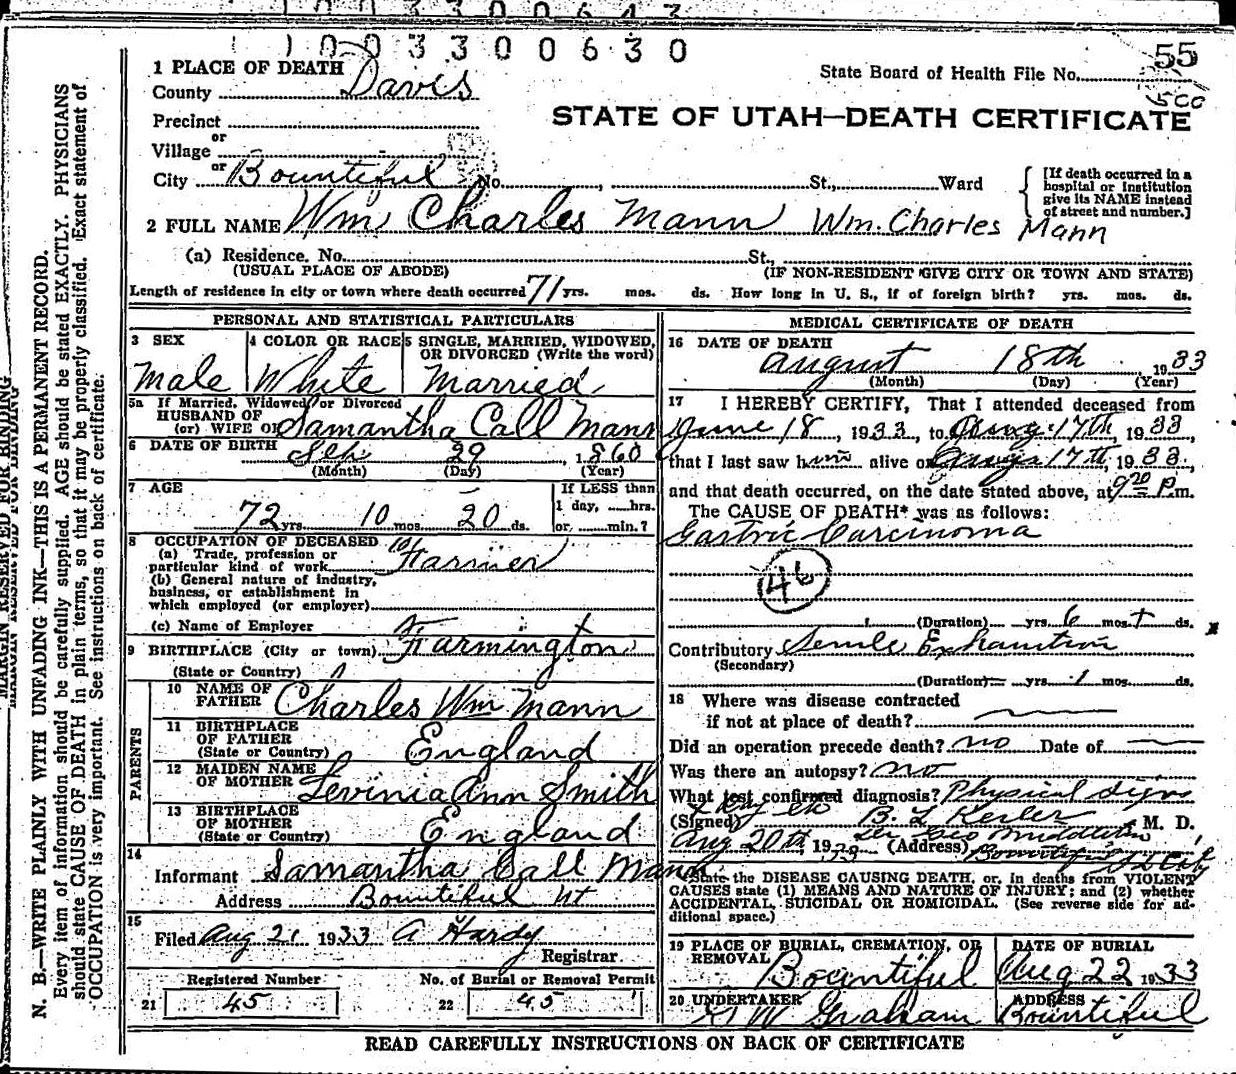 1003300643
1003300630
55
State Board of Health File No.
500
1 PLACE OF DEATH
County Davis
STATE OF UTAH—DEATH CERTIFICATE
Precinct
or
Village
or
City Bountiful No. , St., Ward
[If death occurred in a
hospital or institution
give its NAME instead
of street and number.]
2 FULL NAME Wm Charles Mann Wm. Charles Mann
(a) Residence. No. St.,
(USUAL PLACE OF ABODE) (IF NON-RESIDENT GIVE CITY OR TOWN AND STATE)
Length of residence in city or town where death occurred 71 yrs. mos. ds. How long in U. S., if of foreign birth? yrs. mos. ds.
PERSONAL AND STATISTICAL PARTICULARS
3 SEX
Male
4 COLOR OR RACE
White
5 SINGLE, MARRIED, WIDOWED,
OR DIVORCED (Write the word)
Married
5a If Married, Widowed, or Divorced
HUSBAND OF
(or) WIFE OF Samantha Call Mann
6 DATE OF BIRTH 29 1860
(Month) (Day) (Year)
7 AGE
72 yrs. 10 mos. 20 ds.
If LESS than
1 day, hrs.
or min.?
8 OCCUPATION OF DECEASED
(a) Trade, profession or
particular kind of work Farmer
(b) General nature of industry,
business, or establishment in
which employed (or employer)
(c) Name of Employer
9 BIRTHPLACE (City or town) Farmington
(State or Country)
PARENTS
10 NAME OF
FATHER Charles Wm Mann
11 BIRTHPLACE
OF FATHER
(State or Country) England
12 MAIDEN NAME
OF MOTHER Levinia Ann Smith
13 BIRTHPLACE
OF MOTHER
(State or Country) England
14
Informant Samantha Call Mann
Address Bountiful Ut
15
Filed Aug 21 1933 A Hardy
Registrar
Registered Number
21 45
No. of Burial or Removal Permit
22 45
MEDICAL CERTIFICATE OF DEATH
16 DATE OF DEATH
August 18th 1933
(Month) (Day) (Year)
17 I HEREBY CERTIFY, That I attended deceased from
June 18, 1933, to Aug. 17th, 1933,
that I last saw him alive on Aug 17th, 1933.
and that death occurred, on the date stated above, at 9 20 P.m.
The CAUSE OF DEATH* was as follows:
Gastric Carcinoma
46
(Duration) yrs. 6 mos. ds.
Contributory Senile Exhaustion
(Secondary)
(Duration) yrs. 1 mos. ds.
18 Where was disease contracted
if not at place of death?
Did an operation precede death? no Date of
Was there an autopsy? no
What test confirmed diagnosis? Physical signs
(Signed) B. L Kesler, M. D.
Aug 20th, 1933 (Address)
*State the DISEASE CAUSING DEATH, or, in deaths from VIOLENT
CAUSES state (1) MEANS AND NATURE OF INJURY; and (2) whether
ACCIDENTAL, SUICIDAL OR HOMICIDAL. (See reverse side for ad-
ditional space.)
19 PLACE OF BURIAL, CREMATION, OR
REMOVAL Bountiful
DATE OF BURIAL
Aug 22 1933
20 UNDERTAKER
W Graham
ADDRESS
Bountiful
READ CAREFULLY INSTRUCTIONS ON BACK OF CERTIFICATE
MARGIN RESERVED FOR BINDING
N. B.—WRITE PLAINLY WITH UNFADING INK—THIS IS A PERMANENT RECORD.
Every item of information should be carefully supplied. AGE should be stated EXACTLY. PHYSICIANS
should state CAUSE OF DEATH in plain terms, so that it may be properly classified. Exact statement of
OCCUPATION is very important. See instructions on back of certificate.